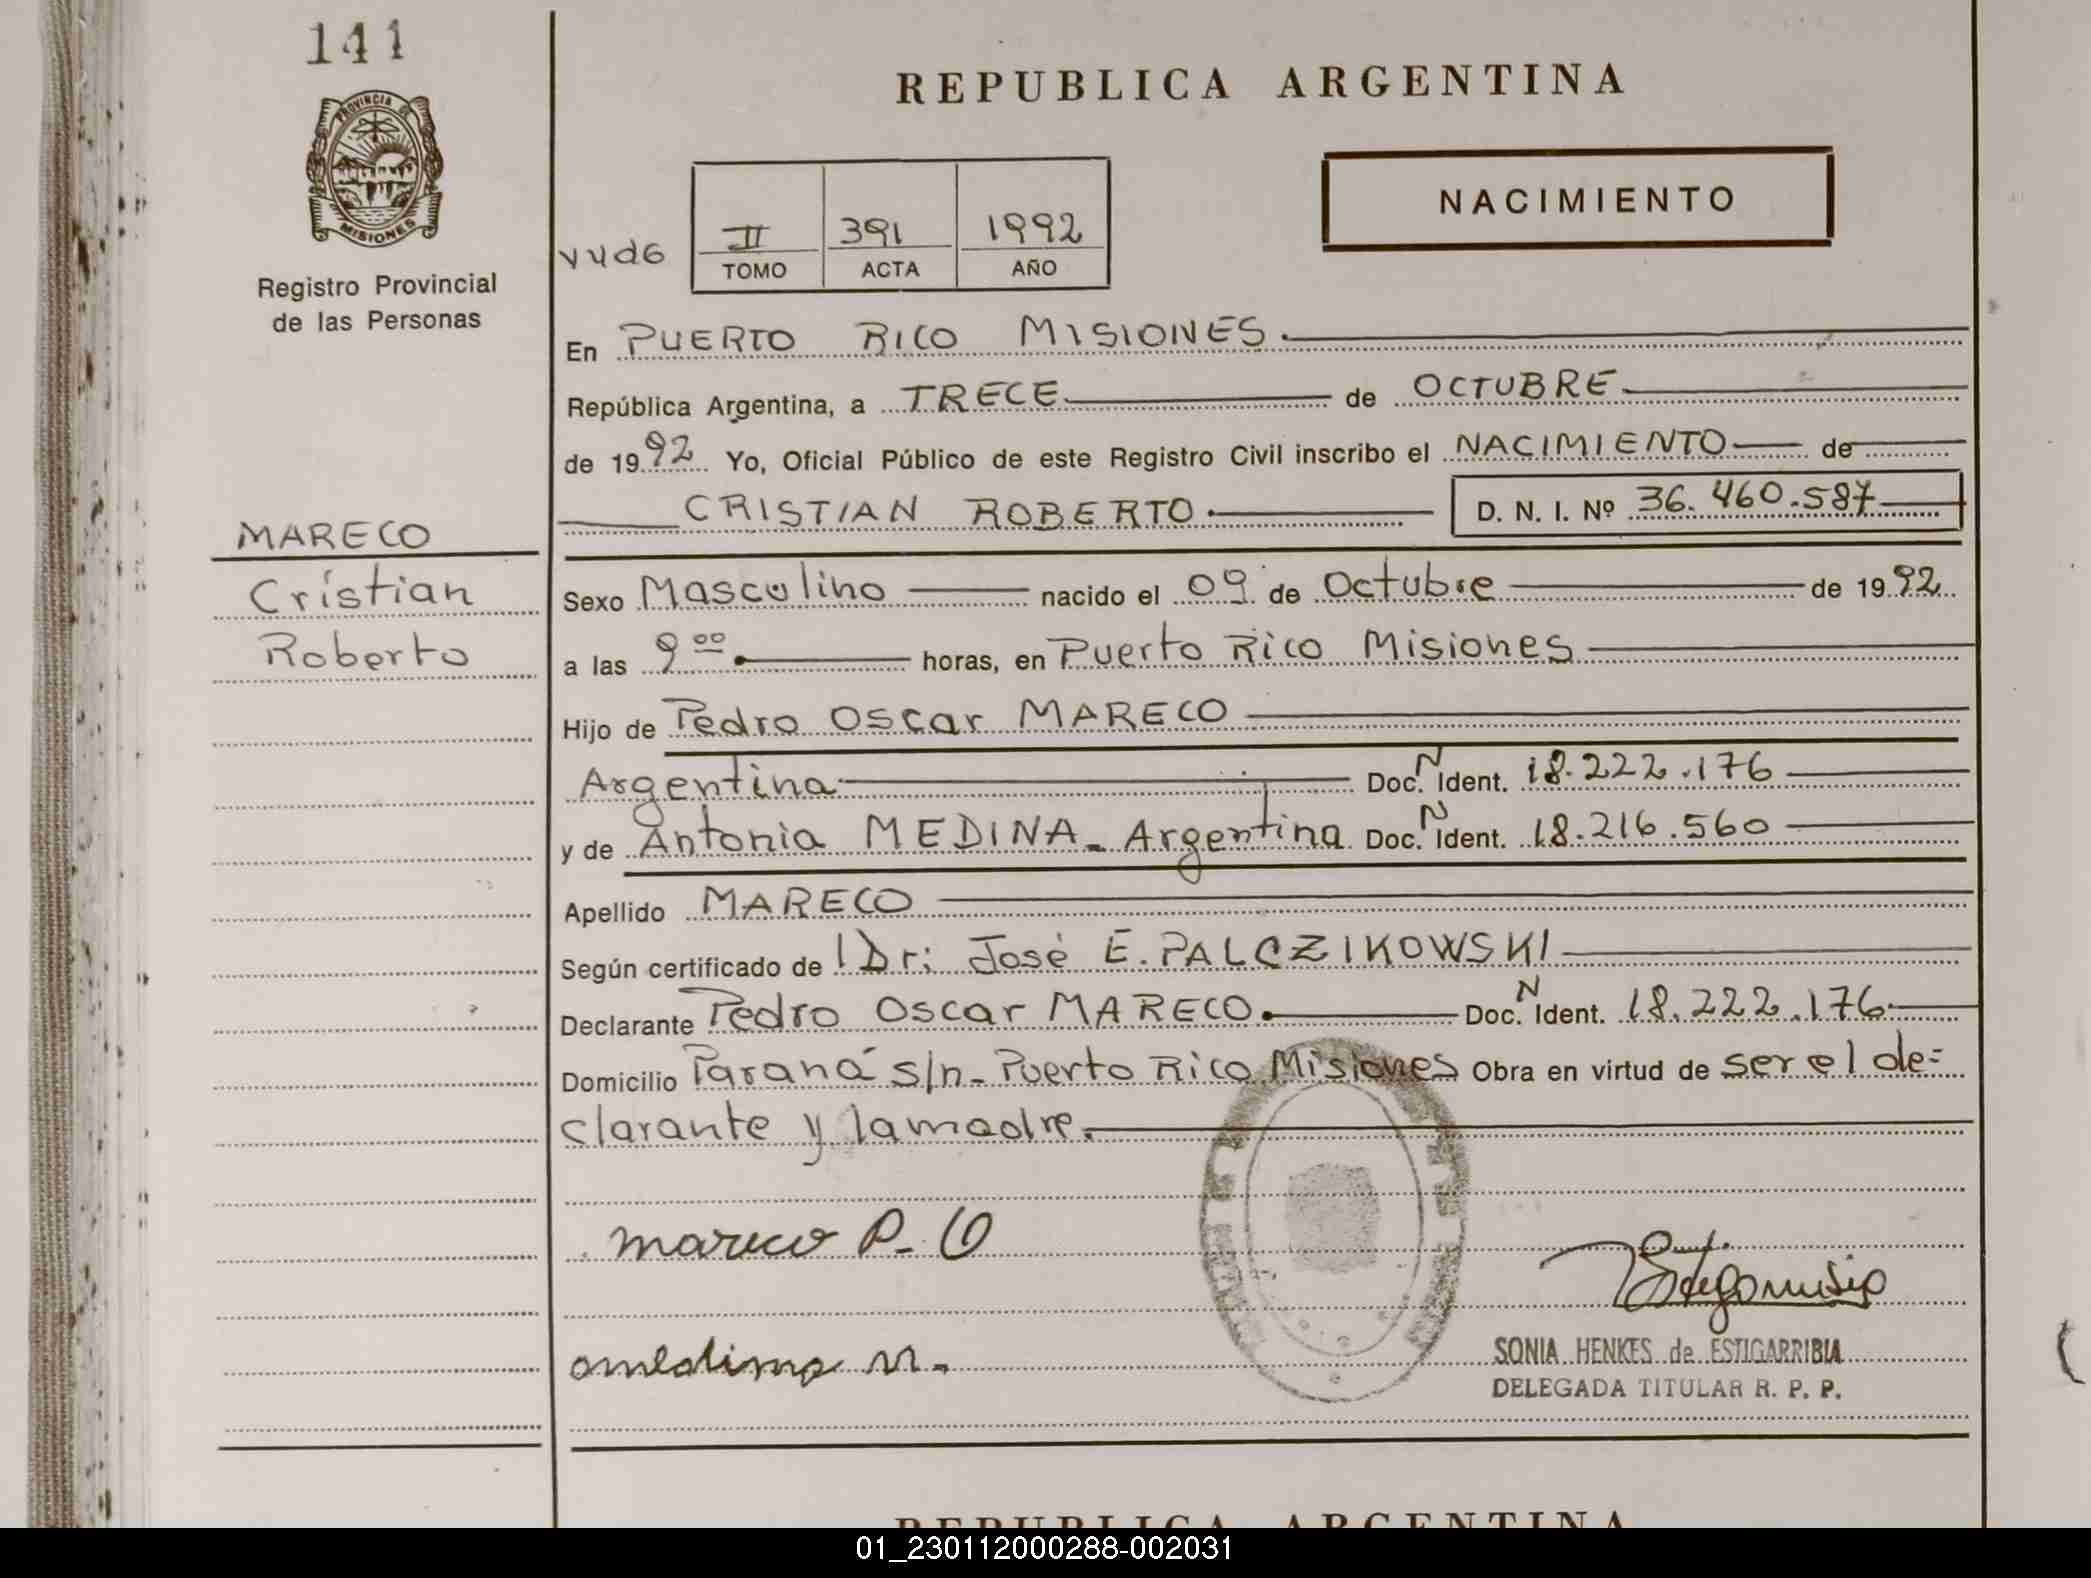 141
PROVINCIA DE
MISIONES
Registro Provincial
de las Personas
REPUBLICA ARGENTINA
NACIMIENTO
II 391 1992
TOMO ACTA AÑO
En PUERTO RICO MISIONES.
República Argentina, a TRECE de OCTUBRE
de 1992 Yo, Oficial Público de este Registro Civil inscribo el NACIMIENTO de
CRISTIAN ROBERTO. D. N. I. Nº 36.460.587
MARECO
Cristian
Roberto
Sexo Masculino nacido el 09 de Octubre de 1992
a las 9 00 horas, en Puerto Rico Misiones
Hijo de Pedro Oscar MARECO
Argentina Doc. N Ident. 18.222.176
y de Antonia MEDINA - Argentina Doc. N Ident. 18.216.560
Apellido MARECO
Según certificado de Dr; José E. PALCZIKOWSKI
Declarante Pedro Oscar MARECO. Doc. N Ident. 18.222.176
Domicilio Paraná s/n - Puerto Rico Misiones Obra en virtud de ser el de=
clarante y la madre.
mareco P. O
SONIA HENKES de ESTIGARRIBIA
DELEGADA TITULAR R. P. P.
REPUBLICA ARGENTINA
01_230112000288-002031